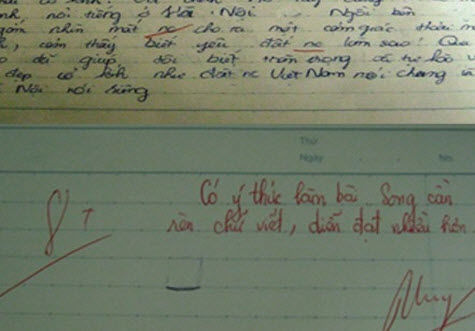 nổi tiếng ở Hà Nội . Ngồi bên
ngắm nhìn mặt nc cho ra một cảm giác thoải m
, cảm thấy biết yêu đất nc làm sao ! Qua
đã giúp tôi biết trân trọng và tự hào v
đẹp cổ kính như đất nc Việt Nam nói chung v
Nội nói riêng
Thứ
Ngày No.
8+
Có ý thức làm bài. Song cần
rèn chữ viết, diễn đạt nhiều hơn